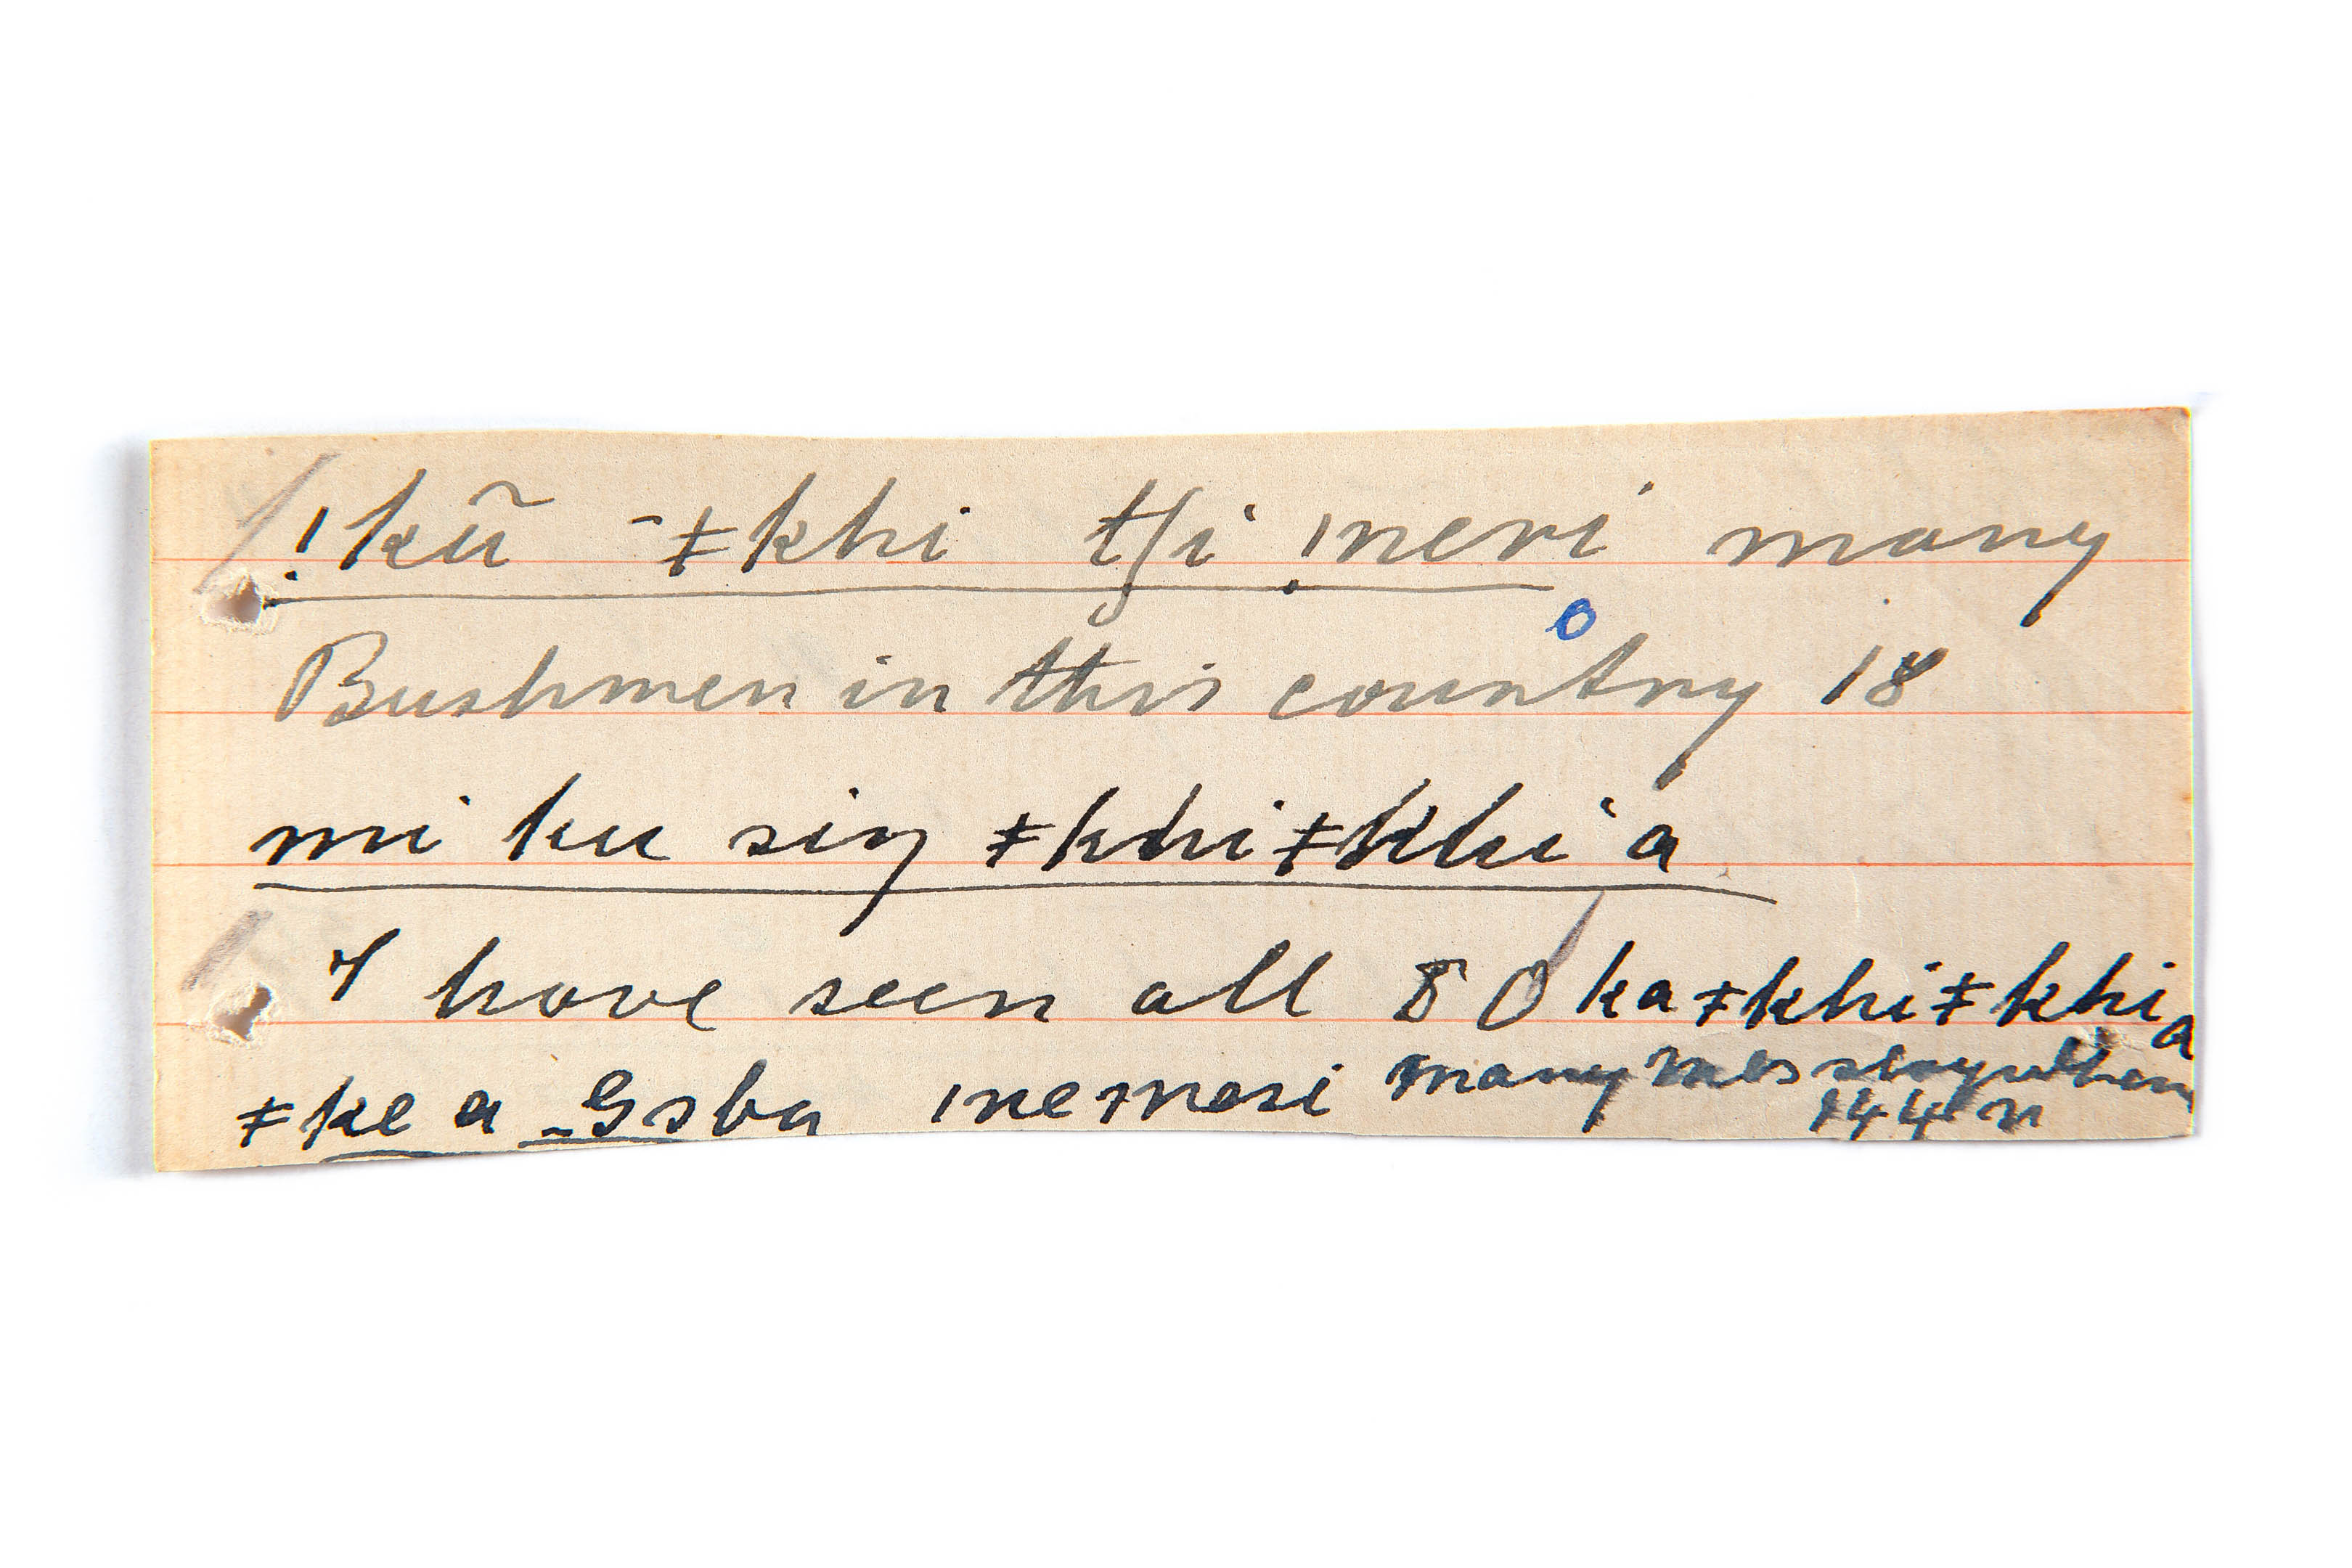 !kũ ǂkhi tʃi !neri many
Bushmen in this country 18
mi ku siŋ ǂkhiǂkhi a
I have seen all 80 ka ǂkhiǂkhi a
ǂke a ǃneмesi many
144